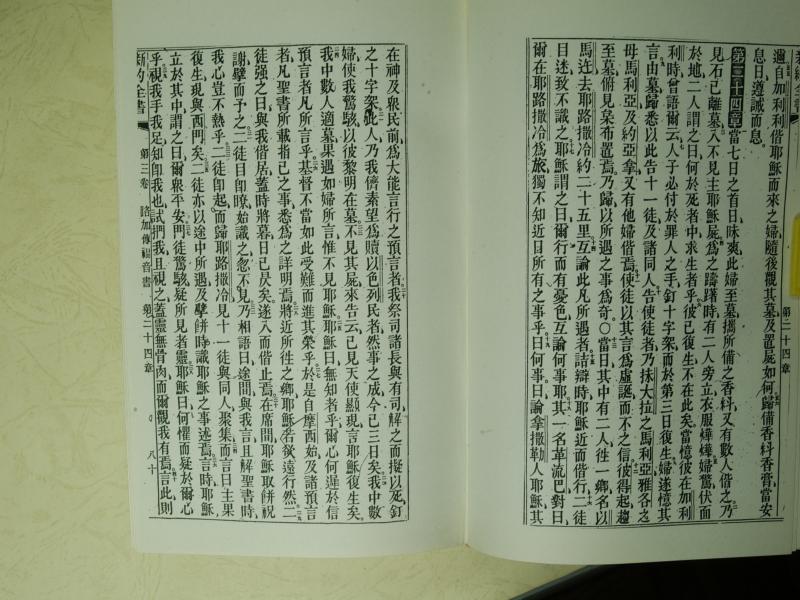 邇自加利利偕耶穌而來之婦隨後觀其墓及置屍如何歸備香料香膏當安
息日遵誡而息
第二十四章 當七日之首日昧爽此婦至墓攜所備之香料又有數人偕之乃
見石已離墓入不見主耶穌屍爲之躊躇時有二人旁立衣服燁燁婦驚伏面
於地二人謂之曰何於死者中求生者乎彼已復生不在此矣當憶彼在加利
利時曾語爾云人子必付於罪人之手釘十字架而於第三日復生婦遂憶其
言由墓歸悉以此告十一徒及諸同人告使徒者乃抹大拉之馬利亞雅各之
母馬利亞及約亞拿又有他婦偕焉使徒以其言爲虛誕而不之信彼得起趨
至墓俯見枲布置焉乃歸以所遇之事爲奇〇當日其中有二人徃一鄉名以
馬迕去耶路撒冷約二十五里互論此凡所遇者詰辯時耶穌近而偕行二徒
目迷致不識之耶穌謂之曰爾行而有憂色互論何事耶其一名革流巴對曰
爾在耶路撒冷爲旅獨不知近日所有之事乎曰何事曰論拿撒勒人耶穌其
第二十四章
在神及衆民前爲大能言行之預言者我祭司諸長與有司解之而擬以死釘
之十字架此人乃我儕素望爲贖以色列民者然事之成今已三日矣我中數
婦使我驚駭以彼黎明在墓不見其屍來告云已見天使顯現言耶穌復生矣
我中數人適墓果遇如婦所言惟不見耶穌耶穌曰無知者乎爾心何遲於信
預言者凡所言乎基督不當如此受難而進其榮乎於是自摩西始及諸預言
者凡聖書所載指己之事悉爲之詳明焉將近所徃之鄉耶穌若欲遠行然二
徒强之曰與我偕居蓋時將暮日已昃矣遂入而偕止焉在席間耶穌取餅祝
謝擘而予之二徒目卽瞭始識之忽不見乃相語曰途間與我言且解聖書時
我心豈不熱乎二徒卽起而歸耶路撒冷見十一徒與同人聚集而言曰主果
復生現與西門矣二徒亦以途中所遇及擘餅時識耶穌之事述焉言時耶穌
立於其中謂之曰爾衆平安門徒驚駭疑所見者靈耶穌曰何懼而疑於爾心
乎視我手我足知卽我也試捫我且視之蓋靈無骨肉而爾觀我有焉言此則
新約全書 第三卷 路加傳福音書 第二十四章 八十